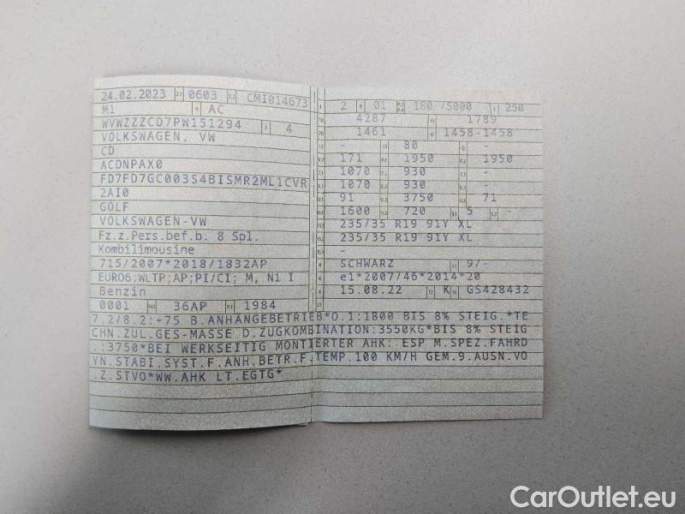 24.02.2023 0603 CMI814673
M1 AC
WVWZZZCD7PW151294 4
VOLKSWAGEN, VW
CD
ACDNPAX0
FD7FD7GC003S4BISMR2ML1CVR
2AI0
GOLF
VOLKSWAGEN-VW
Fz.z.Pers.bef.b. 8 Spl.
Kombilimousine
715/2007*2018/1832AP
EURO6;WLTP;AP;PI/CI; M, N1 I
Benzin
0001 36AP 1984
2 01 180 /5000 250
4287 1789
1461 1458-1458
- 80 -
171 1950 1950
1070 930 -
1070 930 -
91 3750 71
1600 720 5 -
235/35 R19 91Y XL
235/35 R19 91Y XL
-
SCHWARZ 9/-
e1*2007/46*2014*20
15.08.22 K GS428432
7.2/8.2:+75 B.ANHÄNGEBETRIEB*O.1:1800 BIS 8% STEIG.*TE
CHN.ZUL.GES-MASSE D.ZUGKOMBINATION:3550KG*BIS 8% STEIG
.:3750*BEI WERKSEITIG MONTIERTER AHK: ESP M.SPEZ.FAHRD
YN.STABI.SYST.F.ANH.BETR.F.TEMP.100 KM/H GEM.9.AUSN.VO
.Z.STVO*WW.AHK LT.EGTG*
CarOutlet.eu